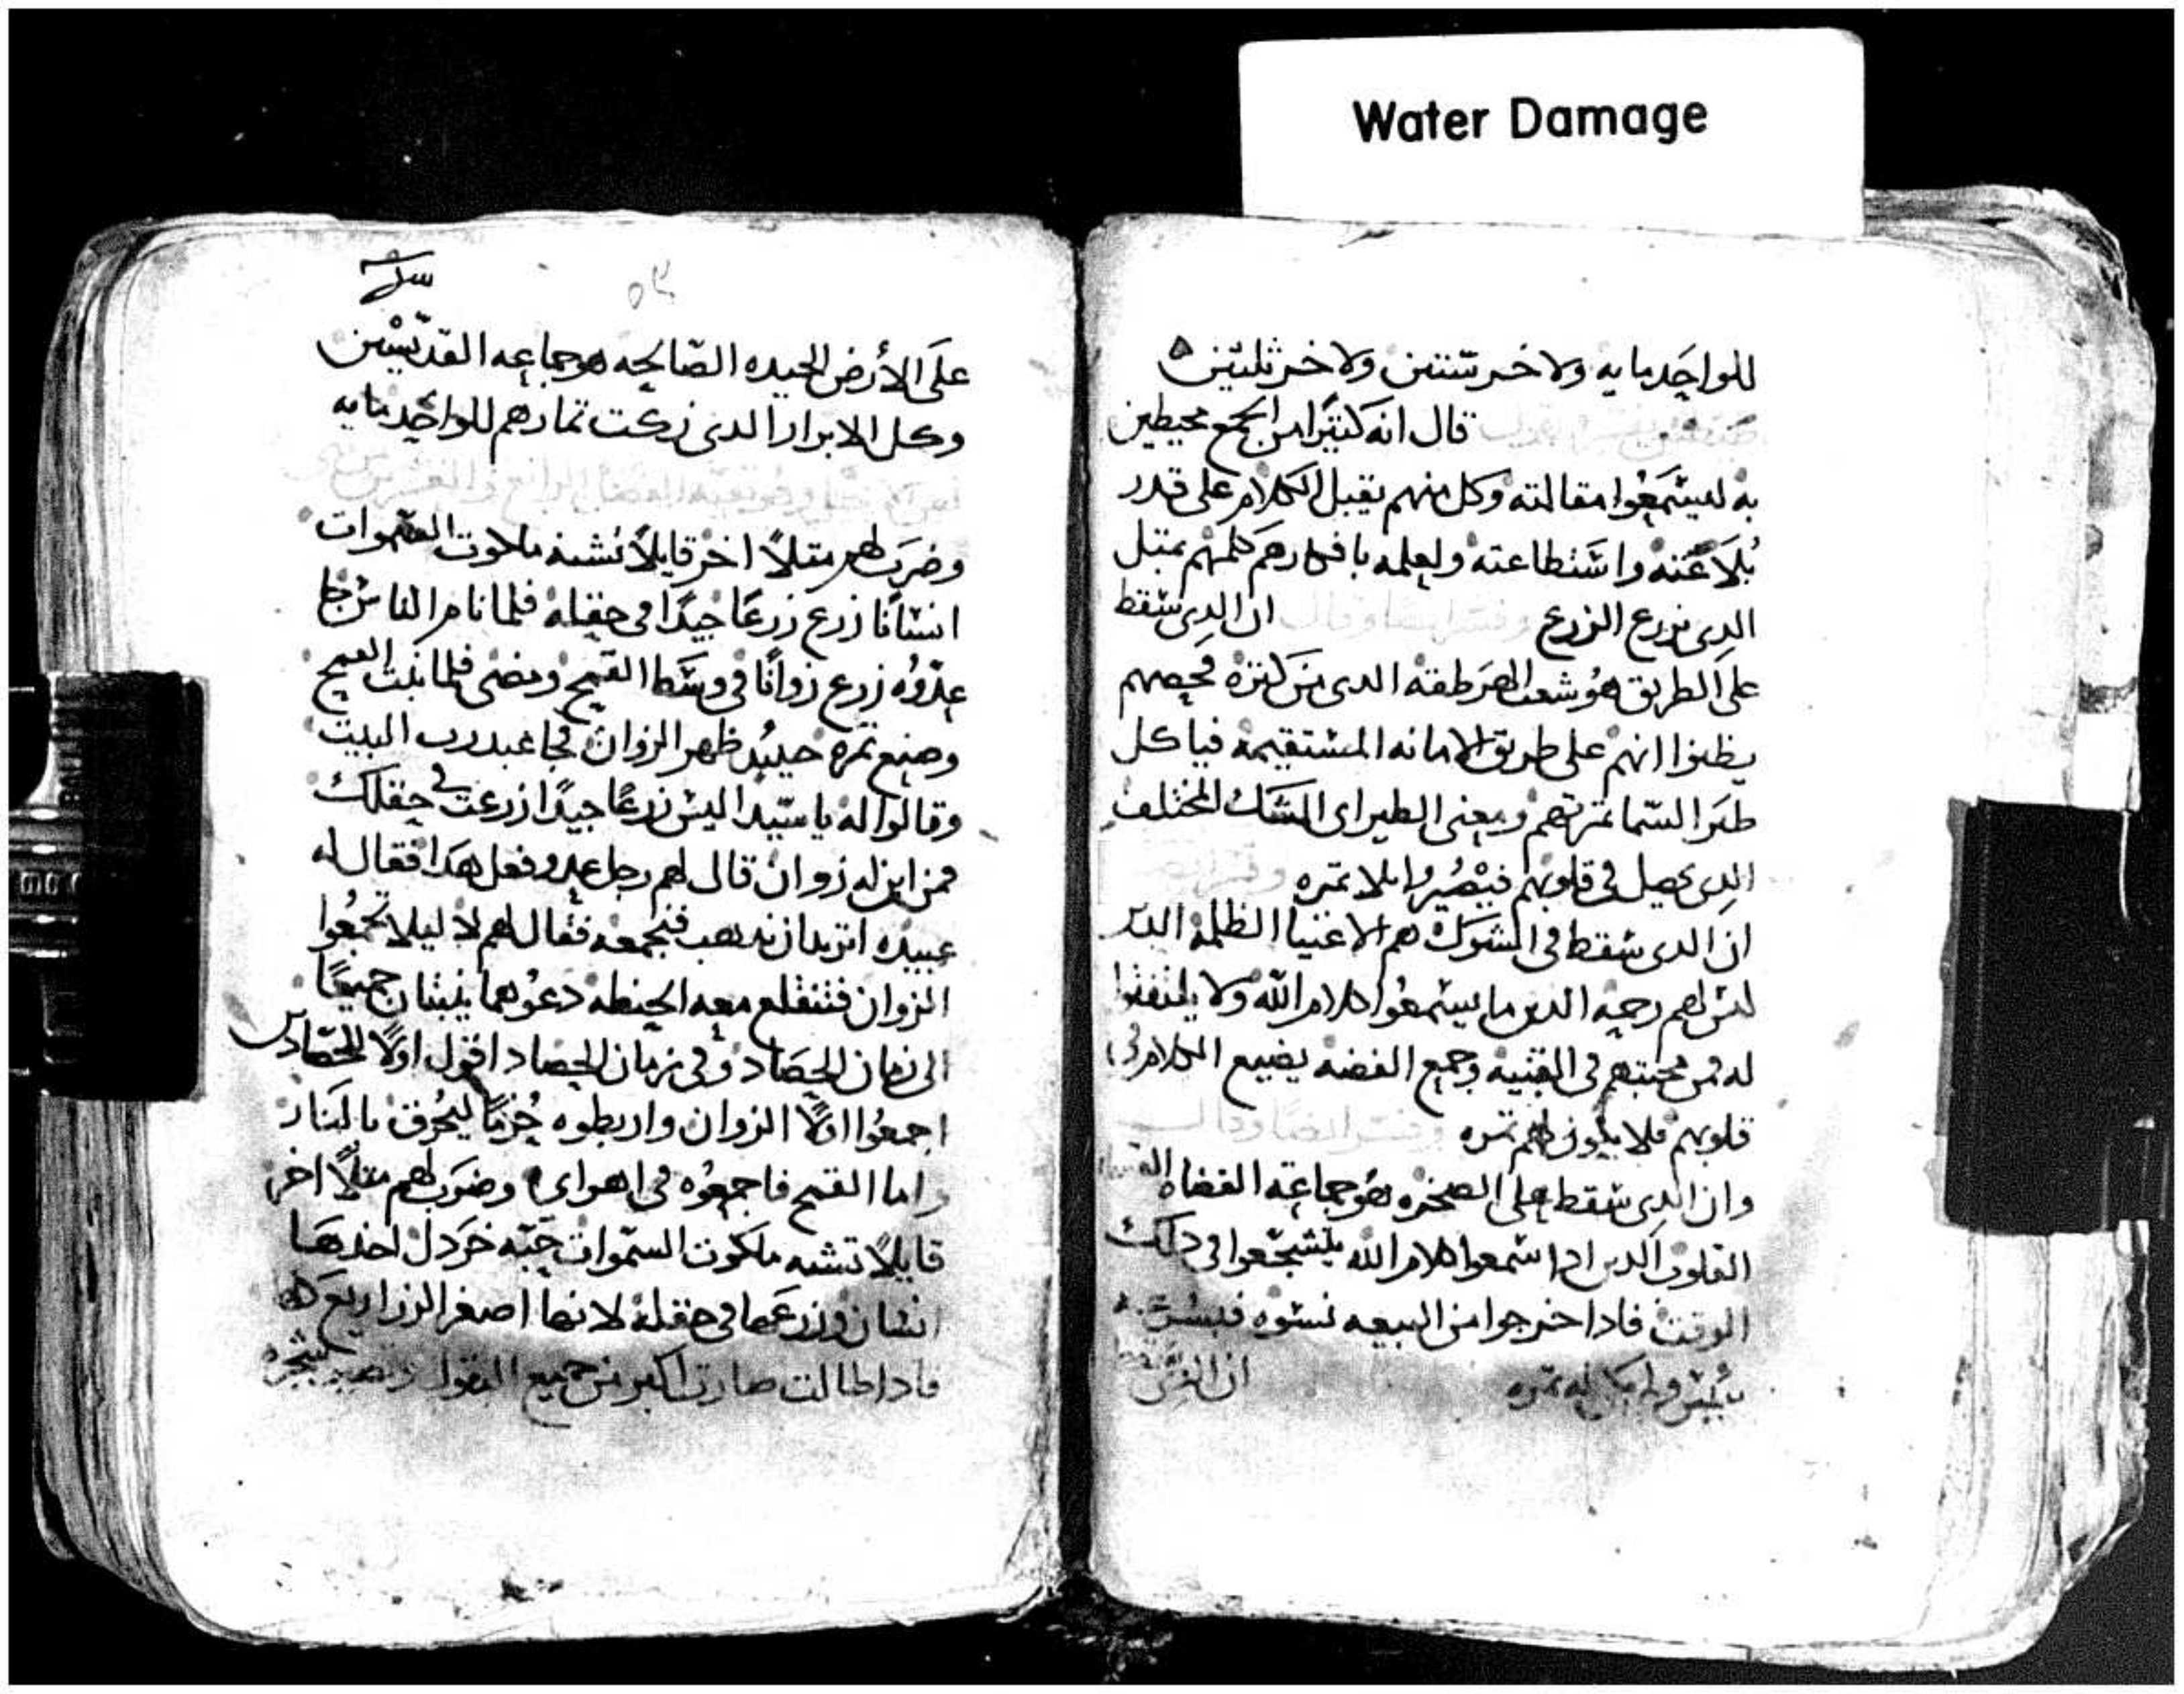 Water Damage
للواحد مايه ولاخر ستين ولاخر ثلثين
قال انه كثيرا من الجمع محيطين
به ليستمعوا مقالته وكل منهم يقبل الكلام على قدر
بلاغته واستطاعته ولعلمه بافكارهم كلمهم بمثل
الدى يزرع الزرع ان الدى سقط
على الطريق هو شعب الهرطقه الدى من كثرة فحصهم
يظنوا انهم على طريق الامانه المستقيمه فياكل
طير السما ثمرتهم ومعنى الطير اى الشك المختلف
الدى يحصل فى قلوبهم فيصيروا بلا ثمره
ان الدى سقط فى الشوك هم الاغنيا الظلمه الدين
ليس لهم رحمه الدين ما يستمعوا كلام الله ولا يلتفتوا
له من محبتهم فى القنيه وجمع الفضه يضيع الكلام فى
قلوبهم فلا يكون لهم ثمره
وان الدى سقط على الصخره هو جماعة القضاه
القلوب الدين ادا سمعوا كلام الله يتشجعوا فى دلك
الوقت فادا خرجوا من البيعه نسوه
له ثمره
على الأرض الجيده الصالحه هو جماعه القديسين
وكل الابرار الدى زكت ثمارهم للواحد مايه
وضرب لهم مثلاً اخر قايلاً تشبه ملكوت السموات
انسانًا زرع زرعًا جيدًا فى حقله فلما نام الناس جا
عدوه زرع زوانًا فى وسط القمح ومضى فلما نبت القمح
وصنع ثمره حينيد ظهر الزوان فجا عبيد رب البيت
وقالوا له يا سيد اليس زرعًا جيدًا زرعت فى حقلك
فمن اين له زوان قال لهم رجل عدو فعل هدا فقال له
عبيده اتريد ان ندهب فنجمعه فقال لهم لا ليلا تجمعوا
الزوان فتنقلع معه الحنطه دعوهما ينبتان جميعًا
الى زمان الحصاد وفى زمان الحصاد اقول اولا للحصادين
اجمعوا اولاً الزوان واربطوه حزمًا ليحرق بالنار
واما القمح فاجمعوه فى اهراى وضرب لهم مثلاً اخر
قايلاً تشبه ملكوت السموات حبه خردل اخدها
انسان وزرعها فى حقله لانها اصغر الزراريع كلها
فادا طالت صارت اكبر من جميع البقول وتصير شجره